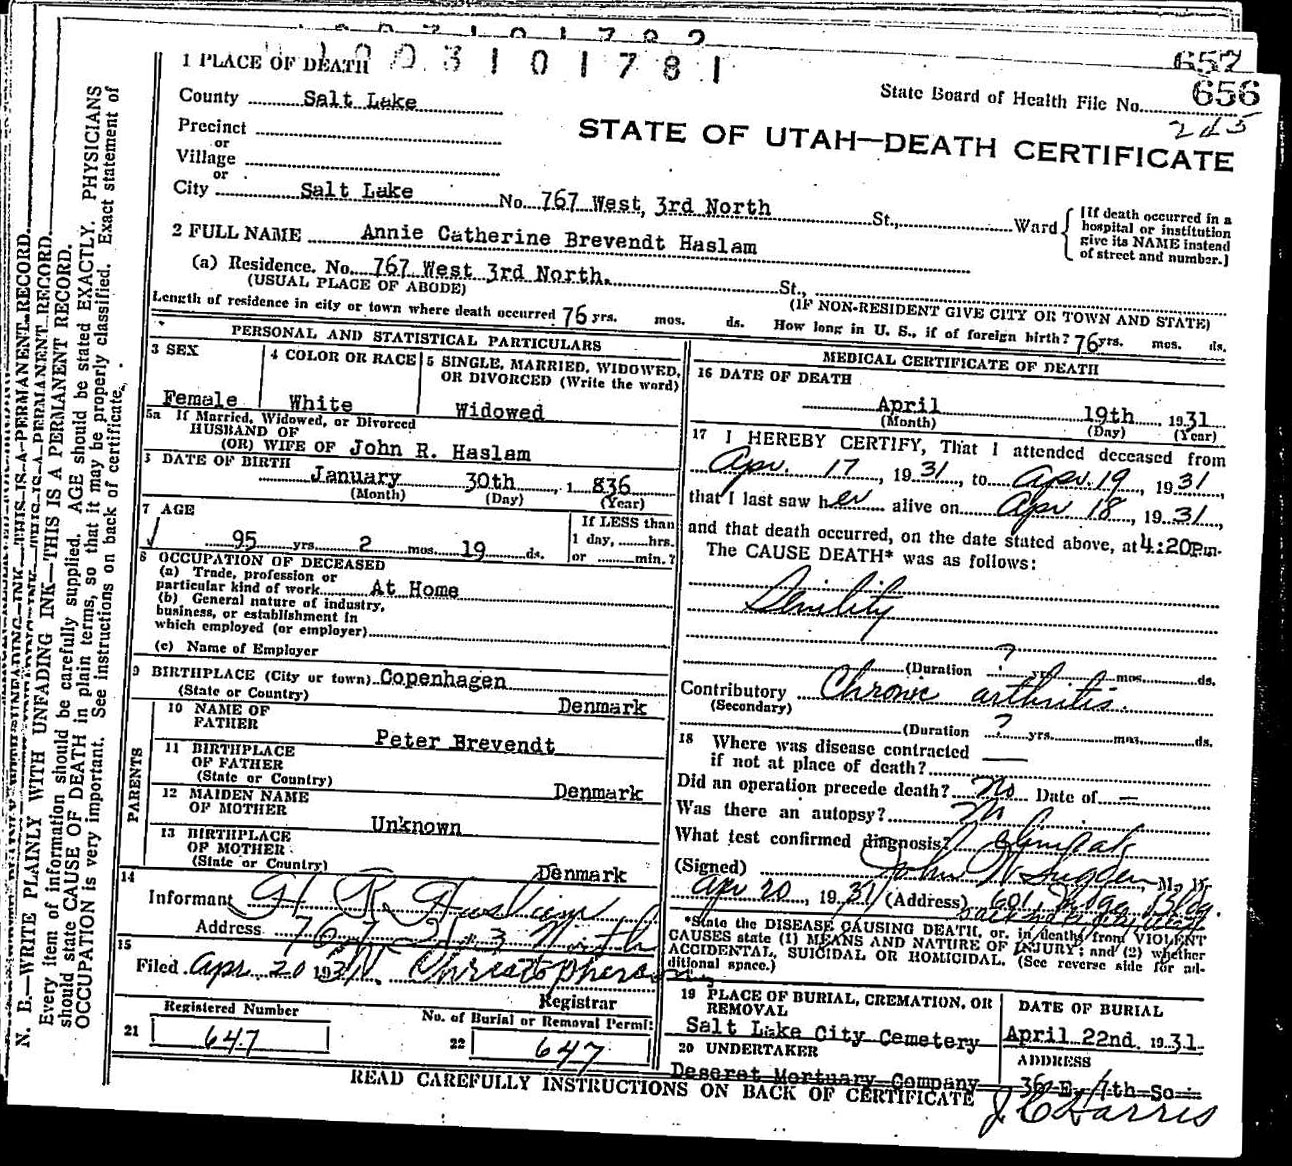 657
1003101781
656
1 PLACE OF DEATH
State Board of Health File No. 656
245
County Salt Lake
STATE OF UTAH—DEATH CERTIFICATE
Precinct
or
Village
or
City Salt Lake No. 767 West, 3rd North St., Ward
[If death occurred in a hospital or institution give its NAME instead of street and number.]
2 FULL NAME Annie Catherine Brevendt Haslam
(a) Residence. No. 767 West 3rd North. St.,
(USUAL PLACE OF ABODE) (IF NON-RESIDENT GIVE CITY OR TOWN AND STATE)
Length of residence in city or town where death occurred 76 yrs. mos. ds. How long in U. S., if of foreign birth? 76 yrs. mos. ds.
PERSONAL AND STATISTICAL PARTICULARS
3 SEX
Female
4 COLOR OR RACE
White
5 SINGLE, MARRIED, WIDOWED, OR DIVORCED (Write the word)
Widowed
5a If Married, Widowed, or Divorced
HUSBAND OF
(OR) WIFE OF John R. Haslam
DATE OF BIRTH
January 30th, 1836
(Month) (Day) (Year)
7 AGE
95 yrs. 2 mos. 19 ds.
If LESS than
1 day, hrs.
or min.?
8 OCCUPATION OF DECEASED
(a) Trade, profession or
particular kind of work At Home
(b) General nature of industry,
business, or establishment in
which employed (or employer)
(c) Name of Employer
9 BIRTHPLACE (City or town) Copenhagen
(State or Country) Denmark
PARENTS
10 NAME OF FATHER Peter Brevendt
11 BIRTHPLACE OF FATHER
(State or Country) Denmark
12 MAIDEN NAME OF MOTHER Unknown
13 BIRTHPLACE OF MOTHER
(State or Country) Denmark
14
Informant H R Haslam
Address 767 W 3 North
15
Filed Apr 20 1931 Christopherson
Registrar
Registered Number
21 647
No. of Burial or Removal Permit
22 647
MEDICAL CERTIFICATE OF DEATH
16 DATE OF DEATH
April 19th 1931
(Month) (Day) (Year)
17 I HEREBY CERTIFY, That I attended deceased from
Apr. 17, 1931, to Apr. 19, 1931,
that I last saw her alive on Apr 18, 1931,
and that death occurred, on the date stated above, at 4:20pm.
The CAUSE DEATH* was as follows:
Senility
(Duration ? yrs. mos. ds.
Contributory Chronic arthritis.
(Secondary)
(Duration ? yrs. mos. ds.
18 Where was disease contracted
if not at place of death? —
Did an operation precede death? No Date of —
Was there an autopsy? No
What test confirmed diagnosis? Clinical
(Signed) John W Sugden, M. D.
Apr 20, 1931 (Address) 601 Bldg.
*State the DISEASE CAUSING DEATH, or, in deaths from VIOLENT
CAUSES state (1) MEANS AND NATURE OF INJURY; and (2) whether
ACCIDENTAL, SUICIDAL OR HOMICIDAL. (See reverse side for ad-
ditional space.)
19 PLACE OF BURIAL, CREMATION, OR REMOVAL
Salt Lake City Cemetery
DATE OF BURIAL
April 22nd. 1931
20 UNDERTAKER
Deseret Mortuary Company
ADDRESS
36 E. 7th So.
J C Harris
READ CAREFULLY INSTRUCTIONS ON BACK OF CERTIFICATE
N. B.—WRITE PLAINLY WITH UNFADING INK—THIS IS A PERMANENT RECORD.
Every item of information should be carefully supplied. AGE should be stated EXACTLY. PHYSICIANS
should state CAUSE OF DEATH in plain terms, so that it may be properly classified. Exact statement of
OCCUPATION is very important. See instructions on back of certificate.